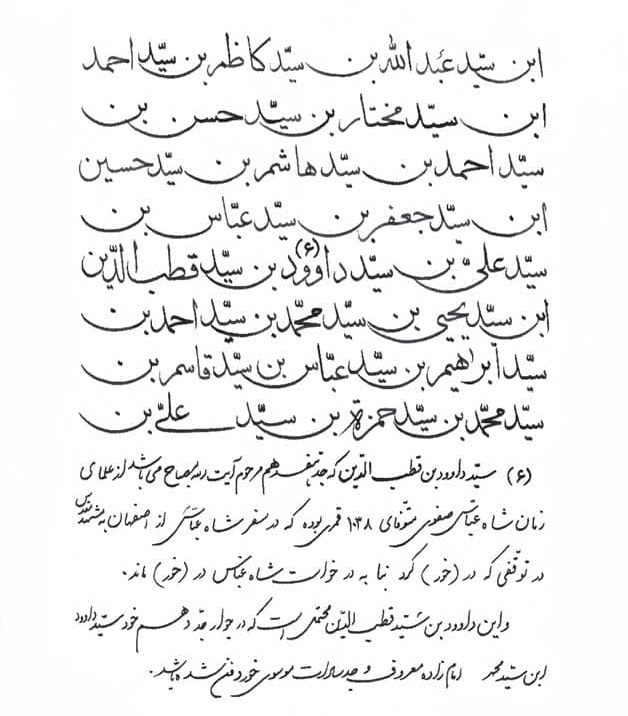 ابن سیّد عبد اللّه بن سیّد کاظم بن سیّد احمد
ابن سیّد مختار بن سیّد حسن بن
سیّد احمد بن سیّد هاشم بن سیّد حسین
ابن سیّد جعفر بن سیّد عبّاس بن
سیّد علیّ بن سیّد داوود (۶) بن سیّد قطب الدّین
ابن سیّد یحیی بن سیّد محمّد بن سیّد احمد بن
سیّد أبراهیم بن سیّد عبّاس بن سیّد قاسم بن
سیّد محمّد بن سیّد حمزة بن سیّد علیّ بن
(۶) سیّد داوود بن قطب الدّین که جدّ هفدهم مرحوم آیت الله مصباح می باشد از علمای
زمان شاه عبّاس صفوی متوفّای ۱۰۳۸ قمری بوده که در سفر شاه عبّاسی از اصفهان به مشهد مقدس
در توقّفی که در (خور) کرد بنا به درخواست شاه عبّاس در (خور) ماند.
و این داوود بن سیّد قطب الدّین محتمل است که در جوار جدّ دهم خود سیّد داوود
ابن سیّد محمد امام زاده معروف و جد سادات موسوی خور دفن شده باشد.